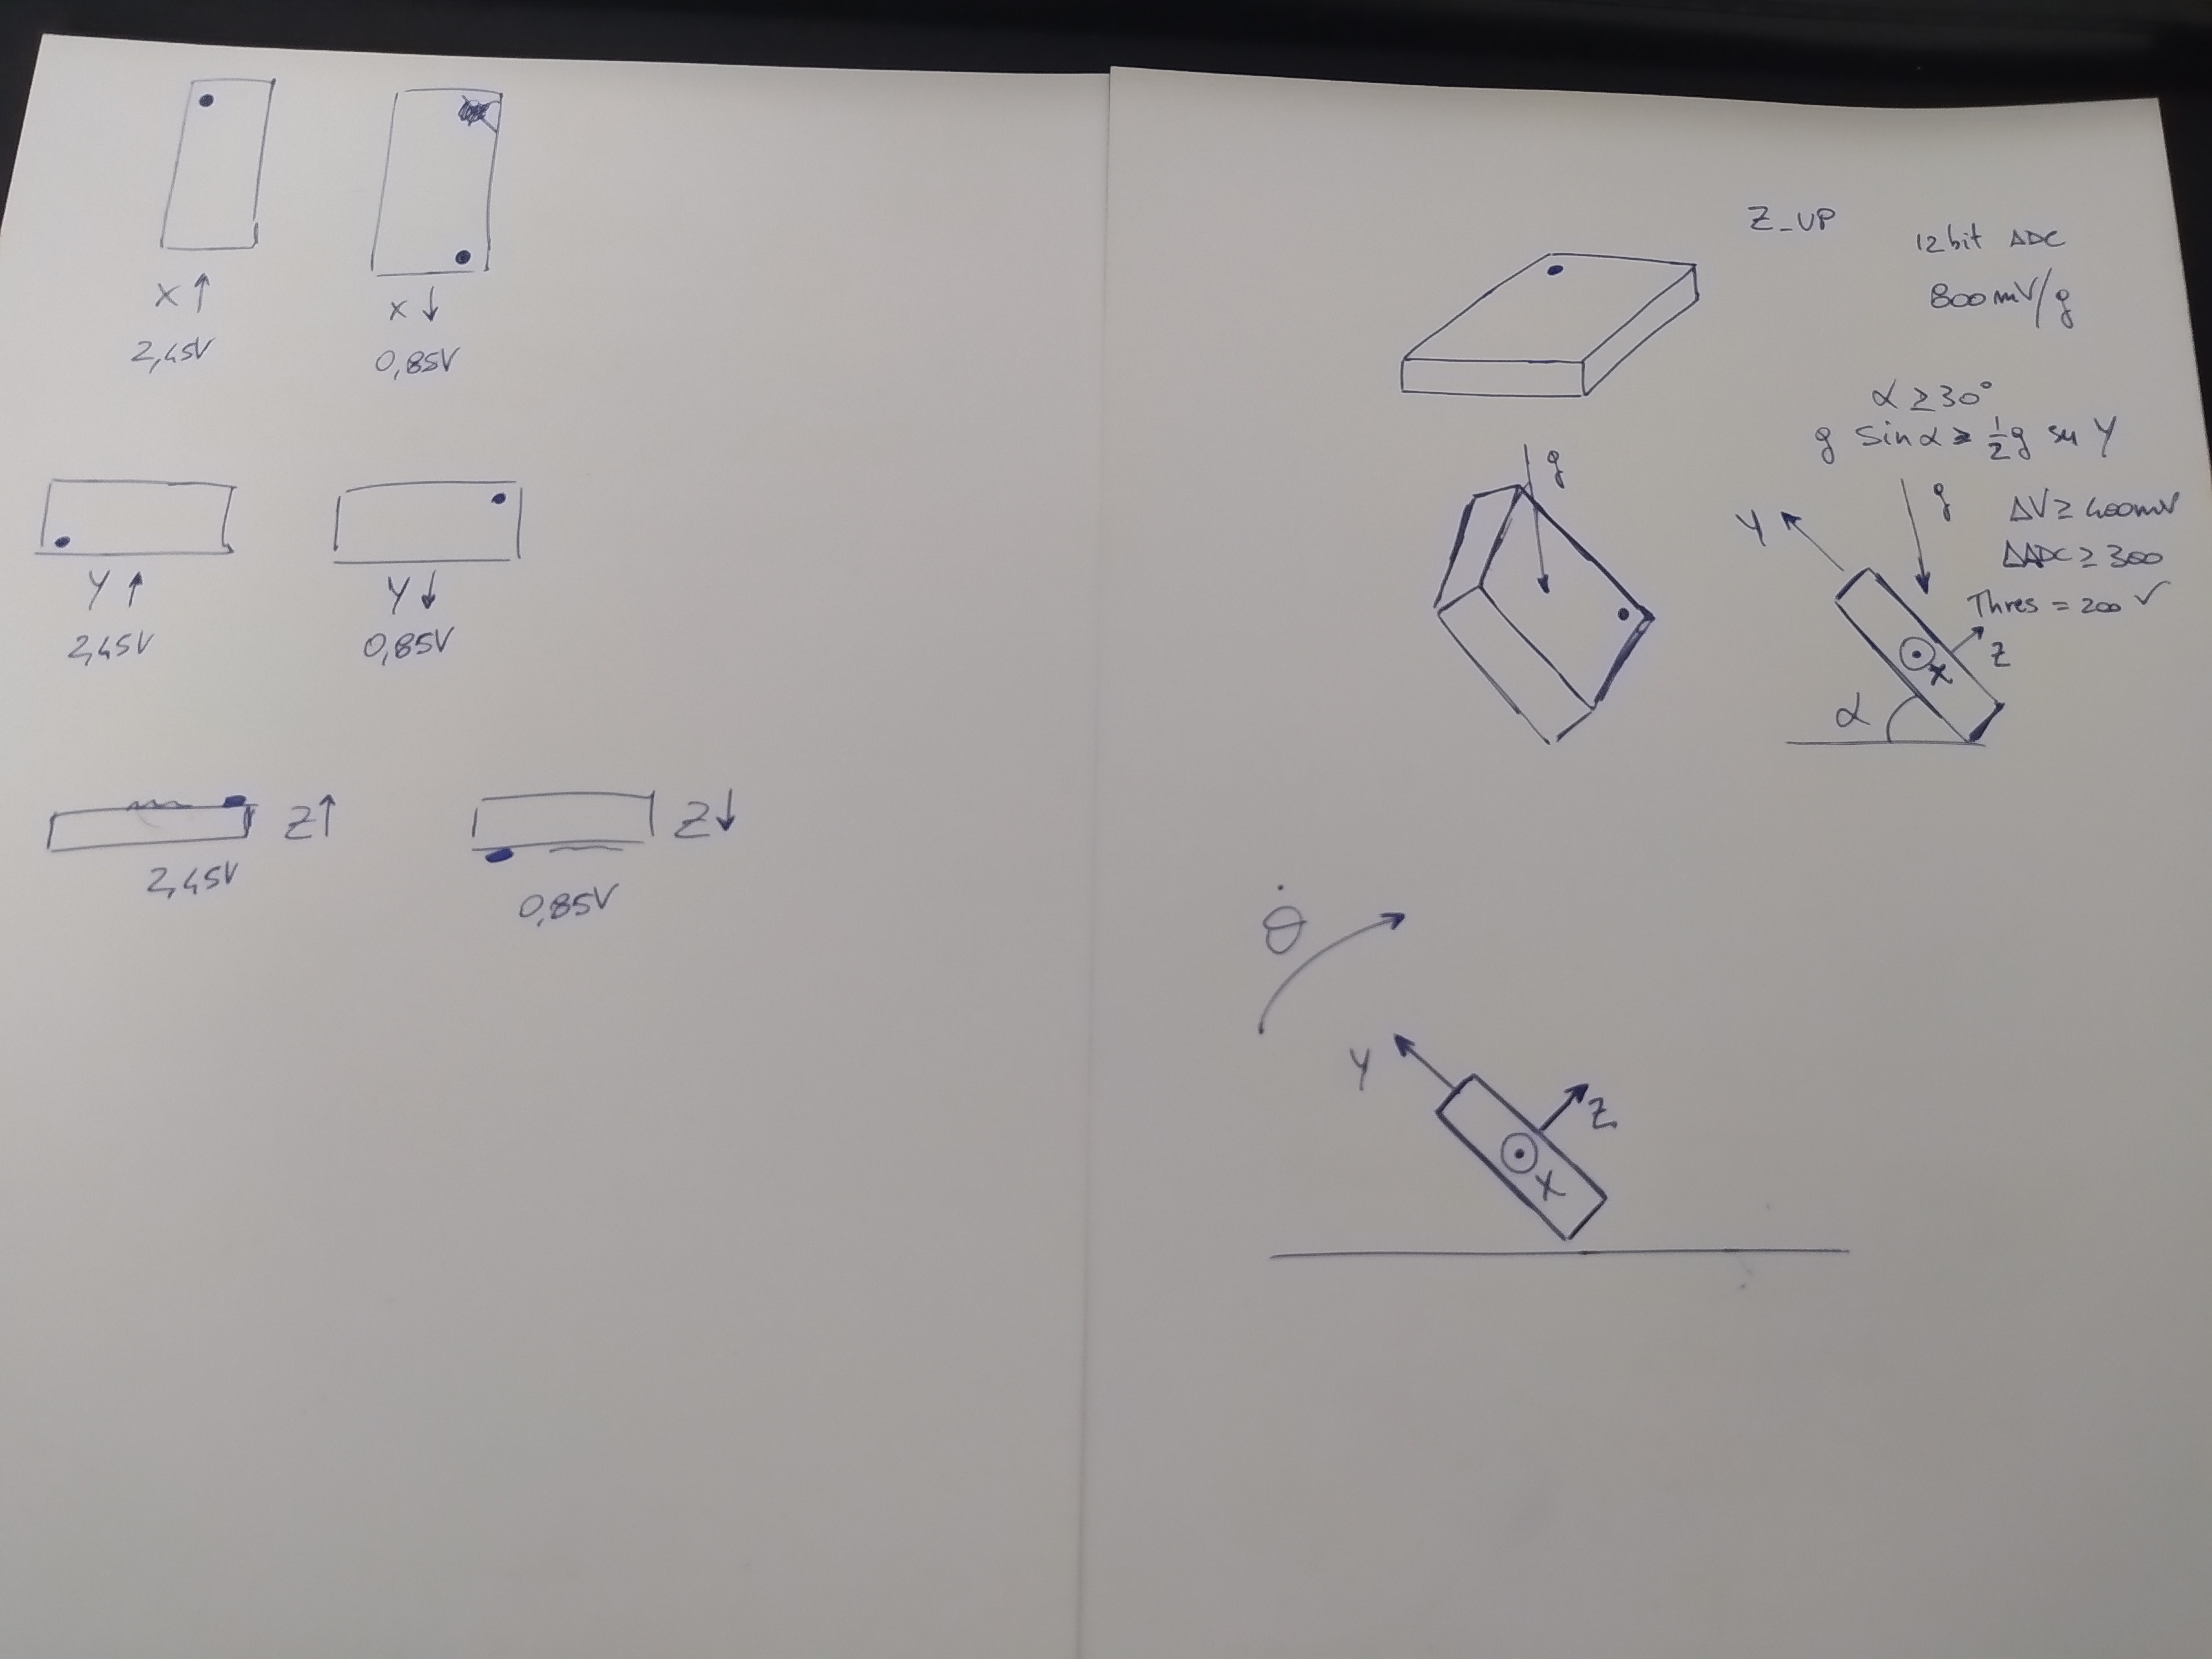 X ↑
2,45V
X ↓
0,85V
Y ↑
2,45V
Y ↓
0,85V
Z ↑
2,45V
Z ↓
0,85V
Z_UP
12 bit ADC
800 mV/g
α ≥ 30°
g sin α ≥ 1/2 g su Y
g
g
ΔV ≥ 400mV
ΔADC ≥ 300
Thres = 200 ✓
Y
Z
X
α
θ̇
Y
Z
X